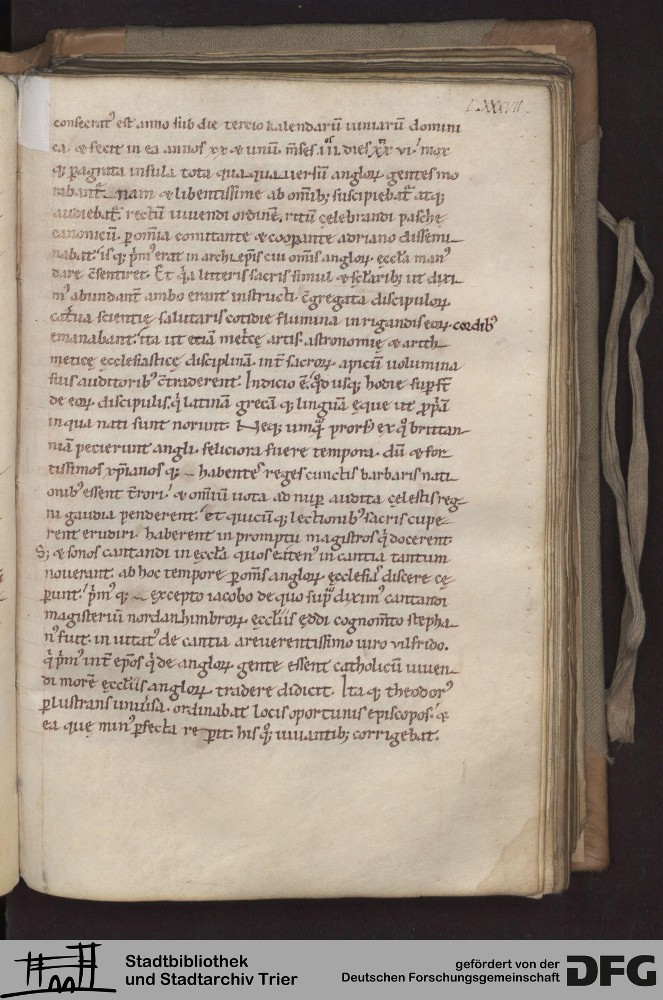 LXXXVII
consecrat' est anno sub die tercio kalendarū iuniarū domini
ca. & fecit in ea annos xx & unū. m̄ses iii. dies xx vi. mox
q; pagrata insula tota quaqua uersū anglor̄ gentes mo
rabant̄. nam & libentissime ab om̄ib; suscipiebat̄ atq;
audiebat̄. rectū uiuendi ordinē. ritū celebrandi paschę
canonicū. p om̄ia comitante & coopante adriano dissemi
nabat. is q; p̄m' erat in archiep̄is cui om̄is anglor̄ ęccl̄a man'
dare c̄sentiret. Et q̄a litteris sacris simul & sc̄larib; ut dixi
m' abundant̄ ambo erant instructi. c̄gregata discipulor̄
cat̄ua scientię salutaris cotidie flumina inrigandis eor̄ cordib'
emanabant. ita ut etiā met̄cę artis. astronomię & arith
meticę ęcclesiasticę disciplinā. int̄ sacror̄ apicū uolumina
suis auditorib' c̄traderent. Indicio ē. q̊d usq; hodie supst̄
de eor̄ discipulis. q̄ latinā grecā q; linguā ęque ut p̄p̄ā
in qua nati sunt norunt. Neq; umq̄ prors' ex q̊ brittan
niā petierunt angli. feliciora fuere tempora. dū & for
tissimos xp̄ianos q; habentes reges cunctis barbaris nati
onib' essent t̄rori. & om̄iū uota ad nup audita cęlestis reg
ni gaudia penderent. et quicūq; lectionib' sacris cupe
rent erudiri. haberent in promptu magistros q̄ docerent.
S; & sonos cantandi in ęccl̄a quos eaten' in cantia tantum
nouerant. ab hoc tempore p om̄s anglor̄ ęcclesias discere cę
punt. p̄m' q; excepto iacobo de quo sup̄ dixim' cantandi
magisteriū nordanhimbror̄ ęccl̄iis ęddi cognom̄to stepha
n' fuit. inuitat' de cantia areuerentissimo uiro uilfrido.
q̄ p̄m' int̄ ep̄os q̄ de anglor̄ gente essent catholicū uiuen
di morē ęccl̄iis anglor̄ tradere didicit. Ita q; theodor'
plustrans uniūsa. ordinabat locis oportunis episcopos. &
ea quę min' pfecta repperit. his q̊; iuuantib; corrigebat.
Stadtbibliothek
und Stadtarchiv Trier
gefördert von der
Deutschen Forschungsgemeinschaft
DFG